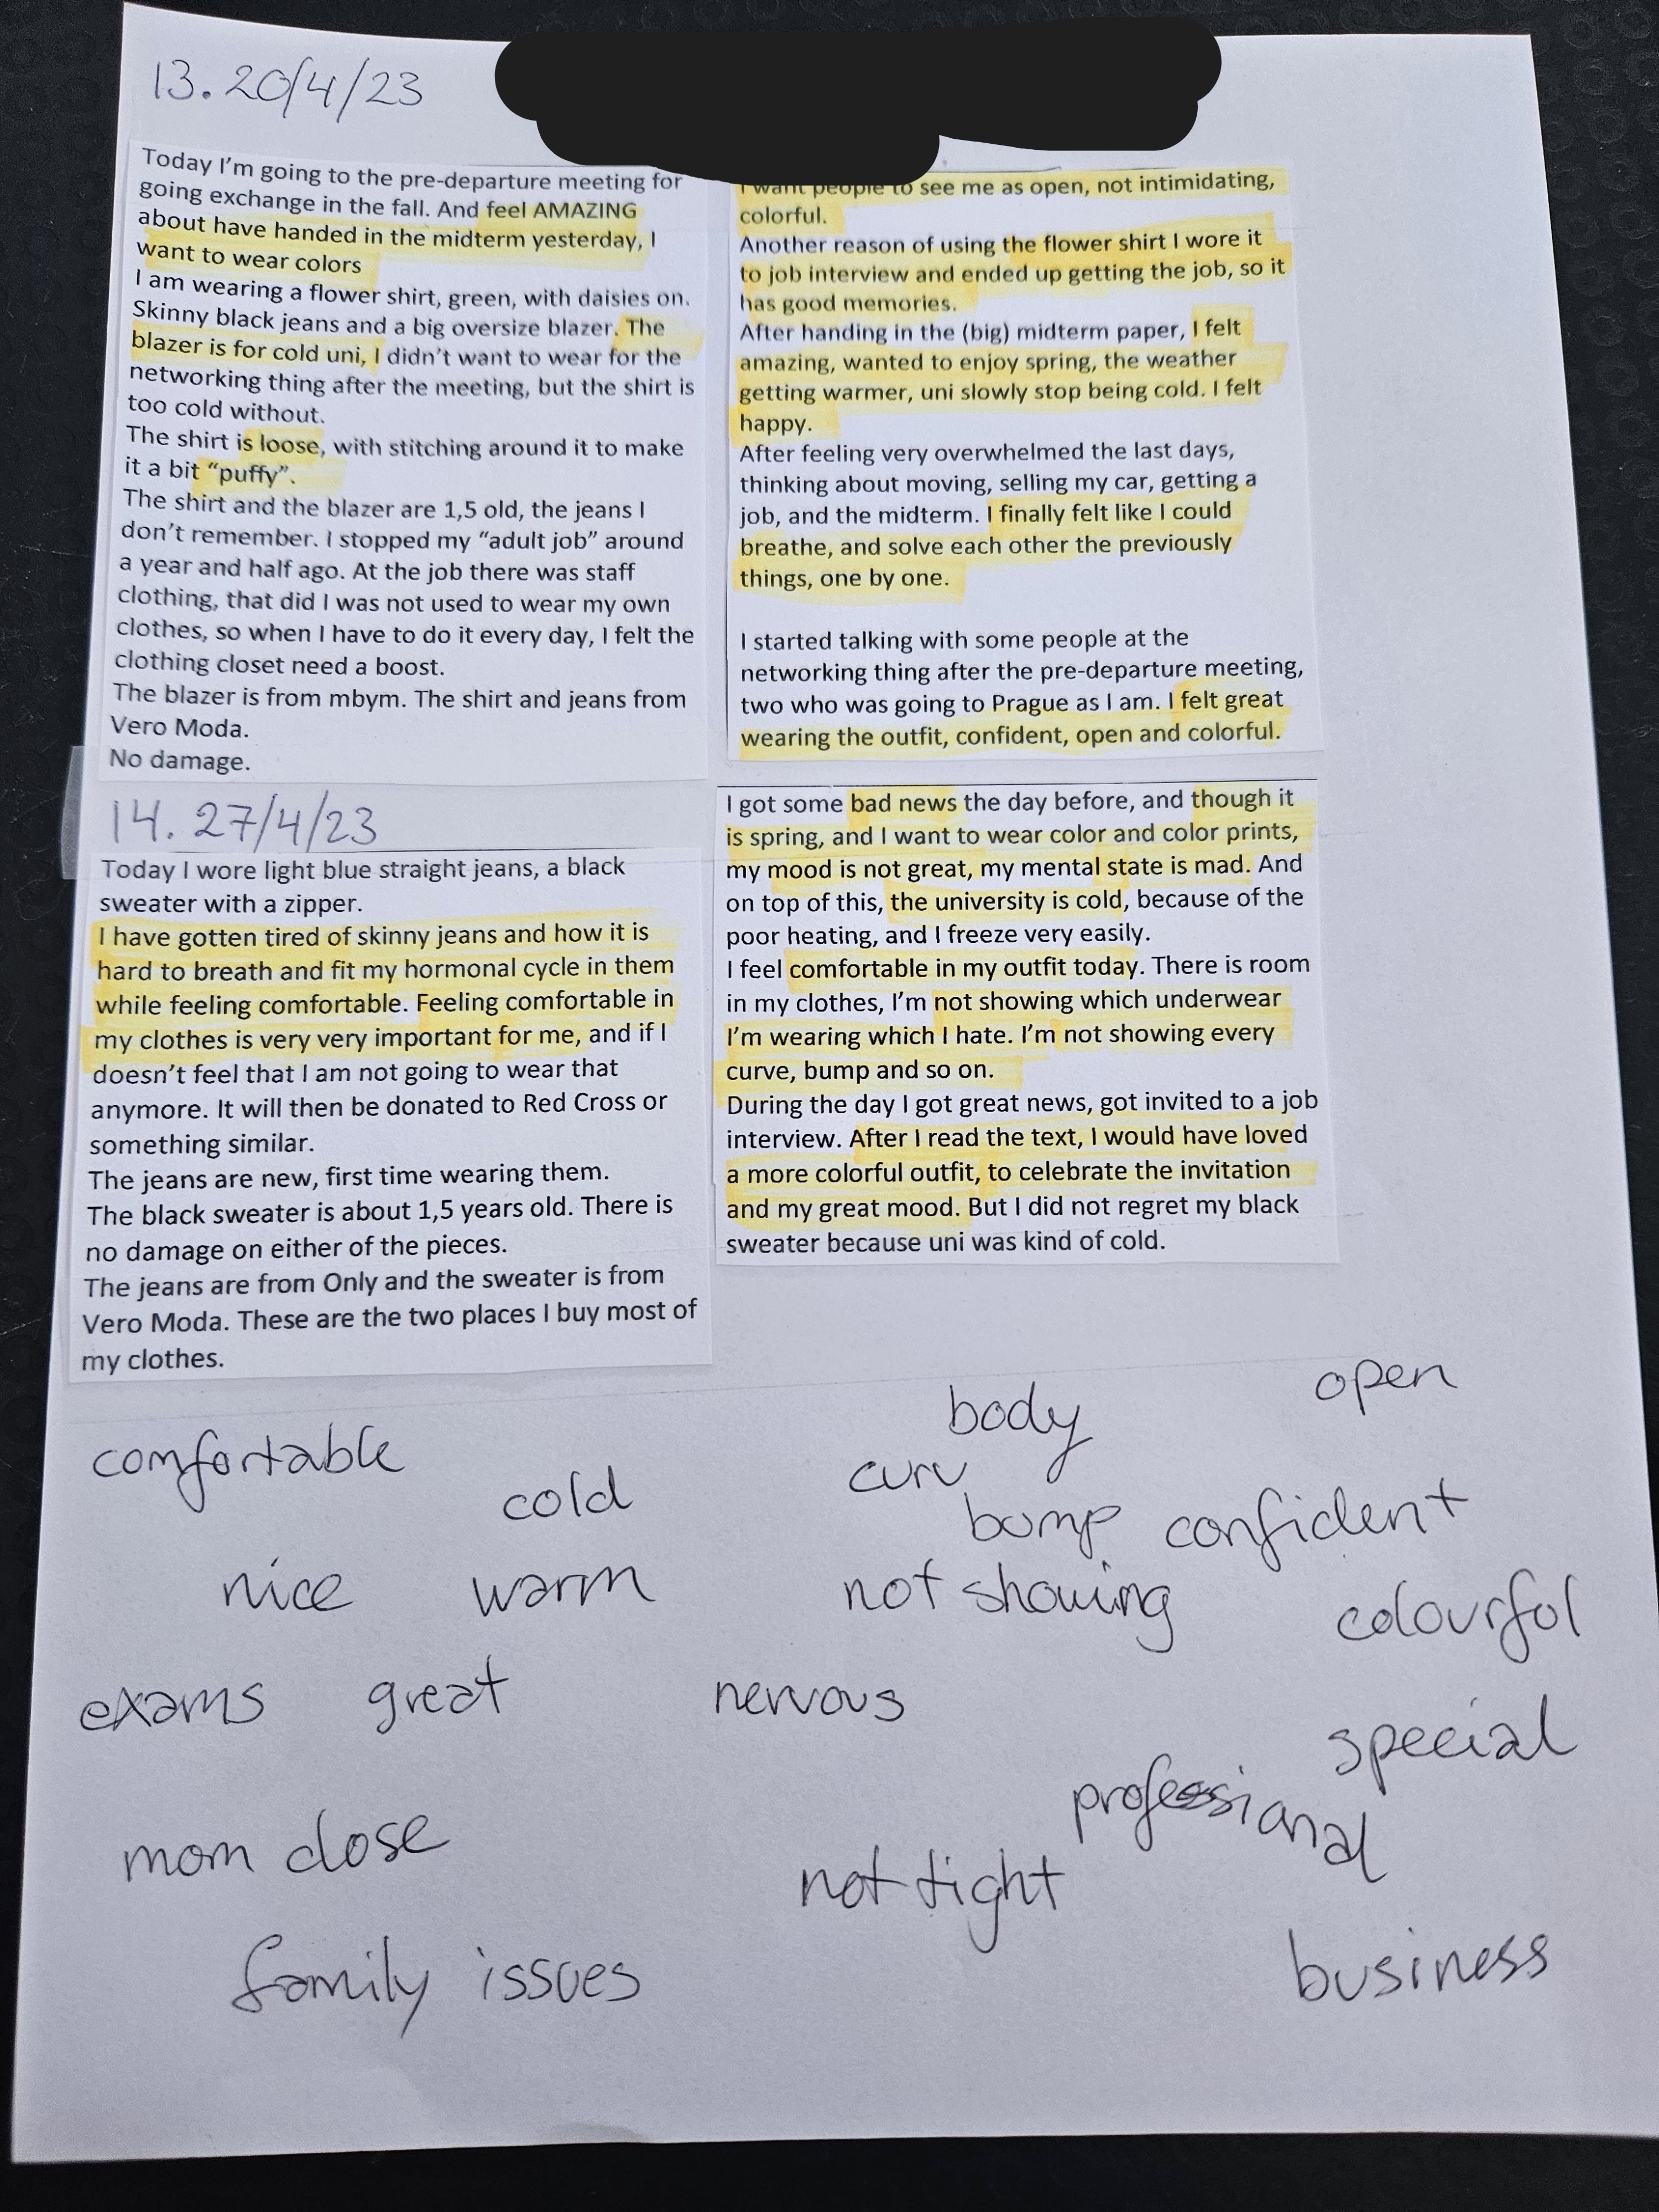 13. 20/4/23
Today I'm going to the pre-departure meeting for
going exchange in the fall. And feel AMAZING
about have handed in the midterm yesterday, I
want to wear colors
I am wearing a flower shirt, green, with daisies on.
Skinny black jeans and a big oversize blazer. The
blazer is for cold uni, I didn't want to wear for the
networking thing after the meeting, but the shirt is
too cold without.
The shirt is loose, with stitching around it to make
it a bit “puffy”.
The shirt and the blazer are 1,5 old, the jeans I
don't remember. I stopped my “adult job” around
a year and half ago. At the job there was staff
clothing, that did I was not used to wear my own
clothes, so when I have to do it every day, I felt the
clothing closet need a boost.
The blazer is from mbym. The shirt and jeans from
Vero Moda.
No damage.
I want people to see me as open, not intimidating,
colorful.
Another reason of using the flower shirt I wore it
to job interview and ended up getting the job, so it
has good memories.
After handing in the (big) midterm paper, I felt
amazing, wanted to enjoy spring, the weather
getting warmer, uni slowly stop being cold. I felt
happy.
After feeling very overwhelmed the last days,
thinking about moving, selling my car, getting a
job, and the midterm. I finally felt like I could
breathe, and solve each other the previously
things, one by one.
I started talking with some people at the
networking thing after the pre-departure meeting,
two who was going to Prague as I am. I felt great
wearing the outfit, confident, open and colorful.
14. 27/4/23
Today I wore light blue straight jeans, a black
sweater with a zipper.
I have gotten tired of skinny jeans and how it is
hard to breath and fit my hormonal cycle in them
while feeling comfortable. Feeling comfortable in
my clothes is very very important for me, and if I
doesn't feel that I am not going to wear that
anymore. It will then be donated to Red Cross or
something similar.
The jeans are new, first time wearing them.
The black sweater is about 1,5 years old. There is
no damage on either of the pieces.
The jeans are from Only and the sweater is from
Vero Moda. These are the two places I buy most of
my clothes.
I got some bad news the day before, and though it
is spring, and I want to wear color and color prints,
my mood is not great, my mental state is mad. And
on top of this, the university is cold, because of the
poor heating, and I freeze very easily.
I feel comfortable in my outfit today. There is room
in my clothes, I'm not showing which underwear
I'm wearing which I hate. I'm not showing every
curve, bump and so on.
During the day I got great news, got invited to a job
interview. After I read the text, I would have loved
a more colorful outfit, to celebrate the invitation
and my great mood. But I did not regret my black
sweater because uni was kind of cold.
open
body
comfortable
curv
cold
bump
confident
nice
warm
not showing
colourful
exams
great
nervous
special
professional
mom close
not tight
family issues
business